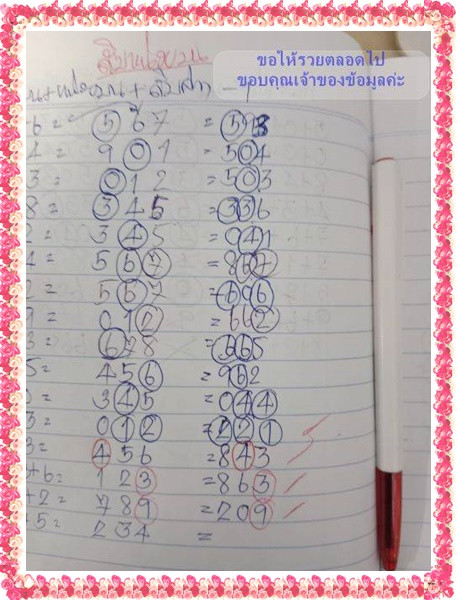 สิบหน่วยบน
ขอให้รวยตลอดไป
ขอบคุณเจ้าของข้อมูลค่ะ
6 = 567 = 593
4 = 901 = 504
3 = 012 = 503
8 = 345 = 336
2 = 345 = 941
4 = 567 = 867
2 = 567 = 696
9 = 012 = 662
3 = 678 = 365
5 = 456 = 962
345 = 044
3 = 012 = 221
3 = 456 = 843
+6 = 123 = 863
+2 = 789 = 209
+5 = 234 =